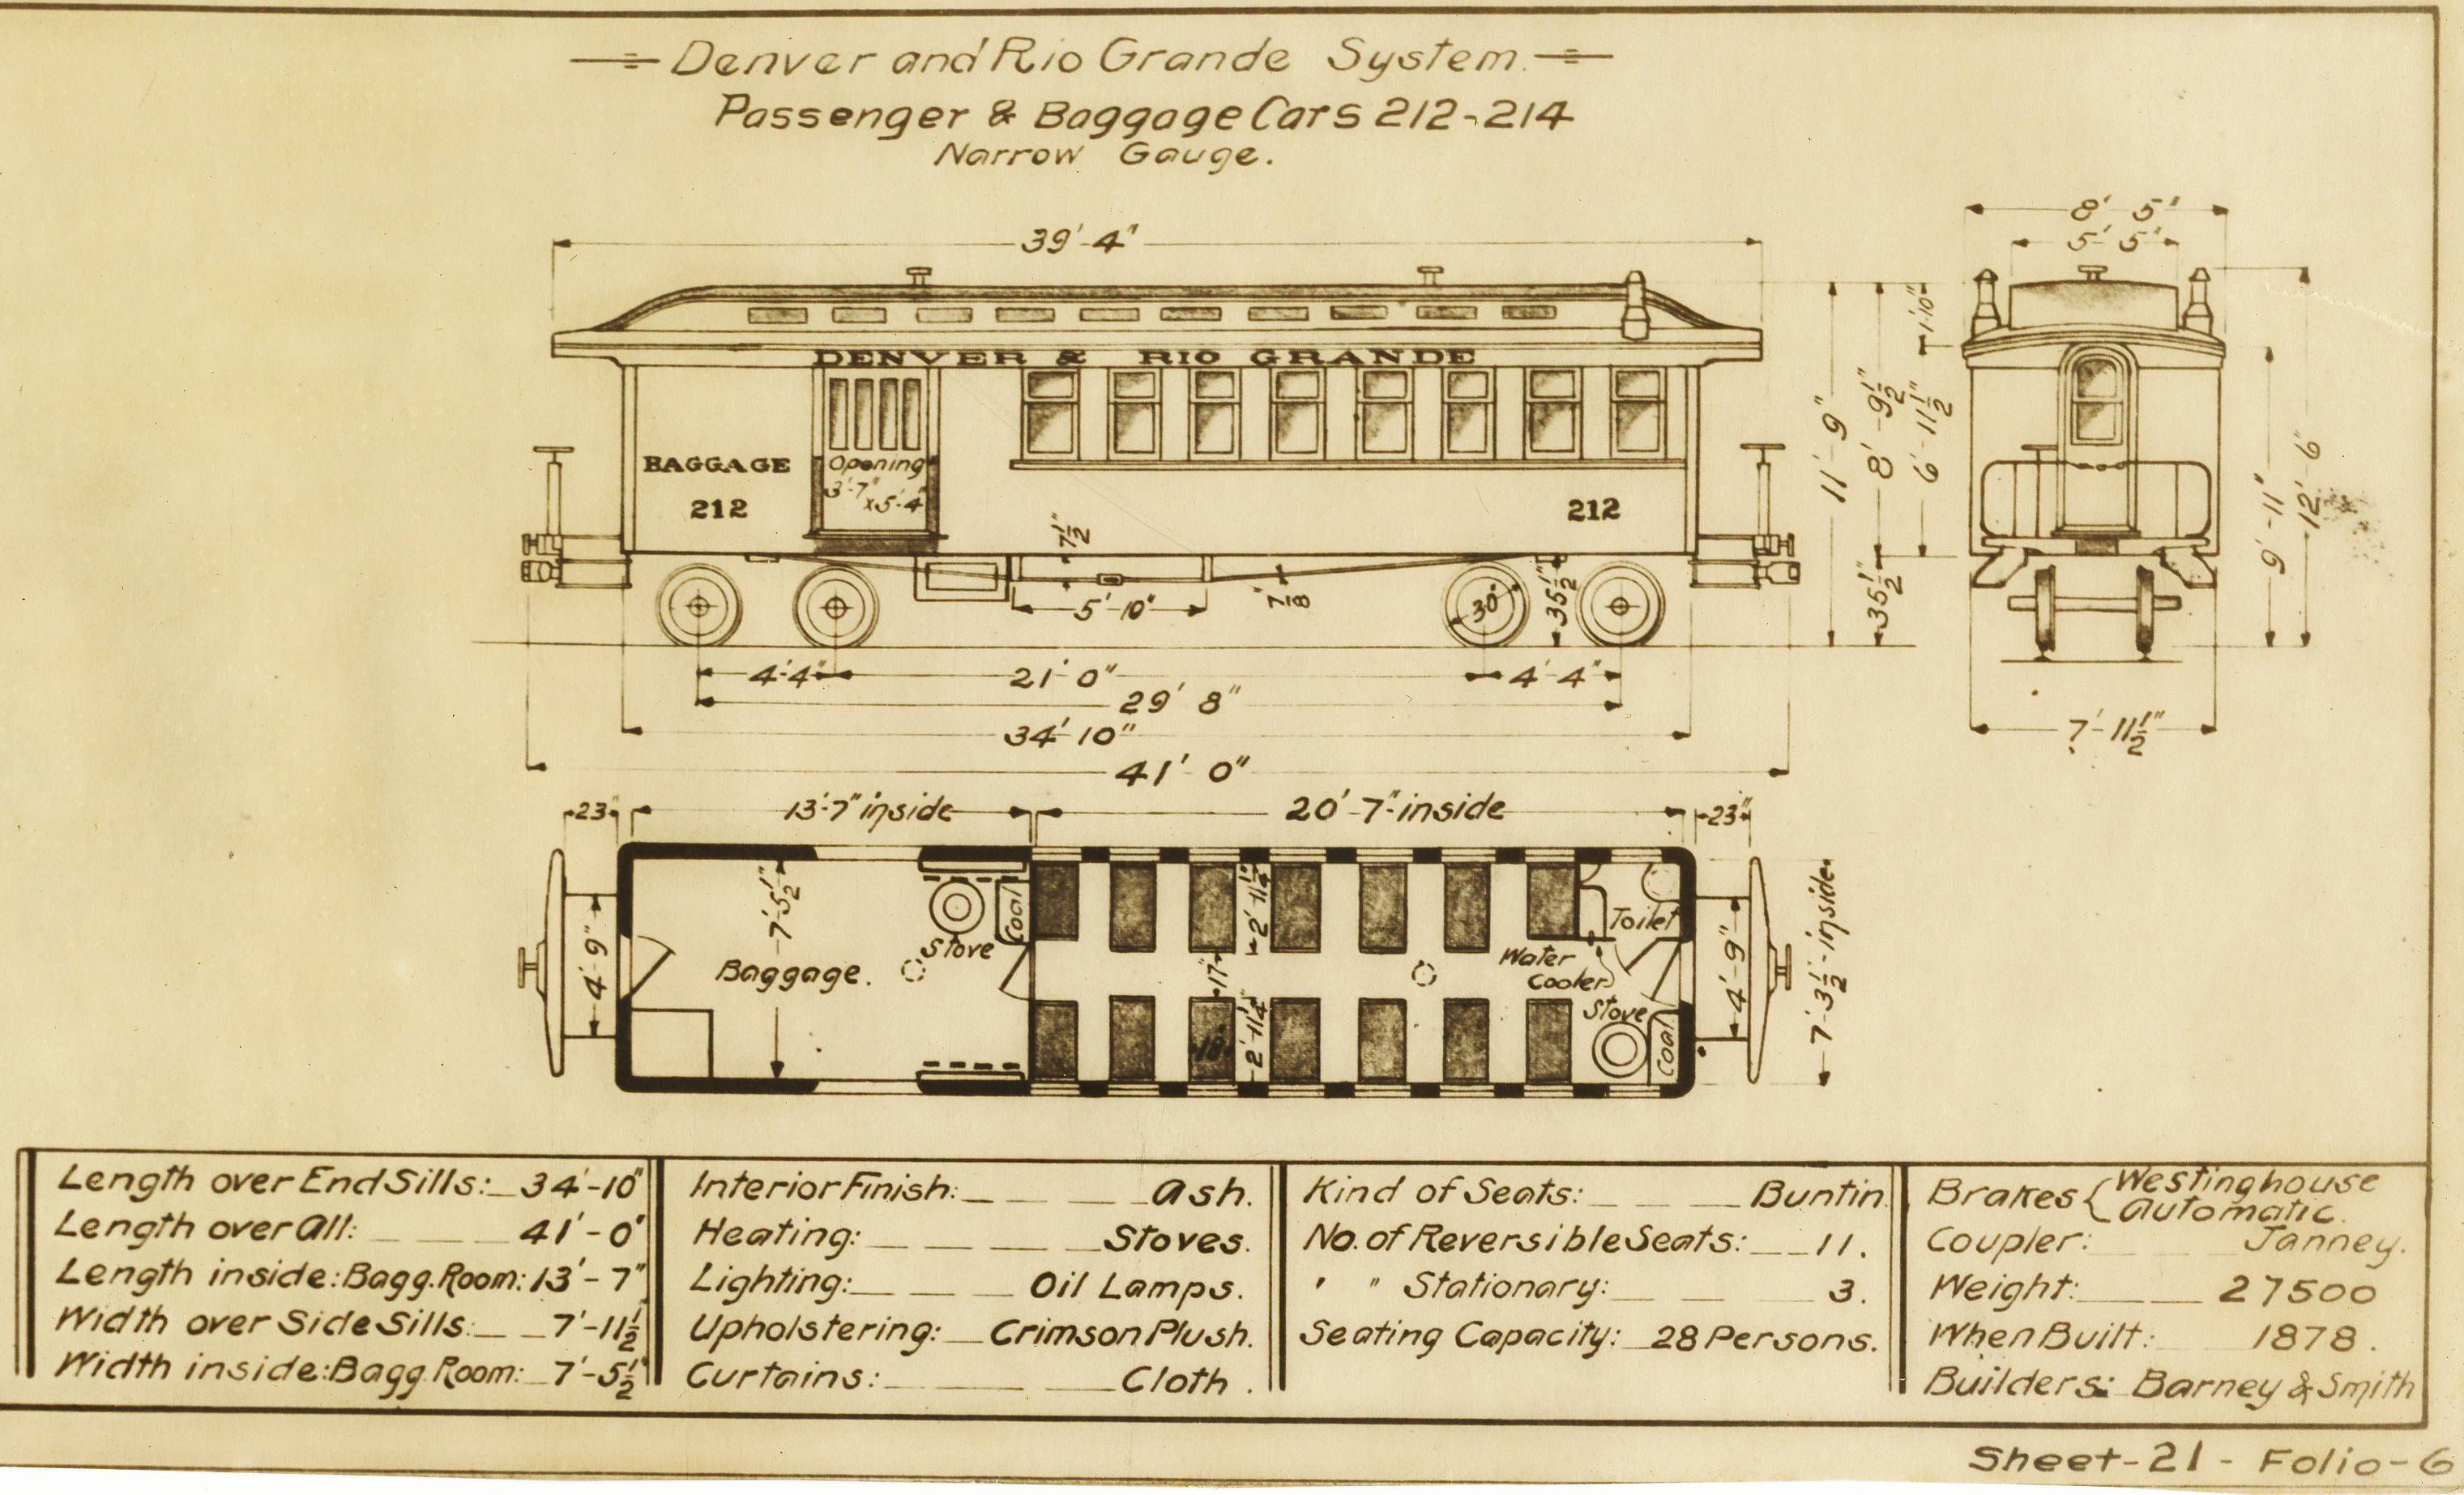 Denver and Rio Grande System.
Passenger & Baggage Cars 212-214
Narrow Gauge.
39'-4"
8'-5"
5'-5"
DENVER & RIO GRANDE
BAGGAGE
212
Opening
3'-7"
x5'-4"
212
7½"
5'-10"
7/8"
30"
35½"
11'-9"
8'-9½"
35½"
1'-10"
6'-11½"
9'-11"
12'-6"
4'-4"
21'-0"
4'-4"
29'8"
34'10"
41'-0"
7'-11½"
23"
13'-7" inside
20'-7" inside
23"
4'-9"
7'-5½"
Baggage.
Stove
Coal
2'-11¼"
17"
18"
2'-11¼"
Water
Cooler
Toilet
Stove
Coal
4'-9"
7'-3½" inside.
Length over End Sills: 34'-10"
Length over All: 41'-0"
Length inside: Bagg. Room: 13'-7"
Width over Side Sills: 7'-11½
Width inside: Bagg. Room: 7'-5½"
Interior Finish: Ash.
Heating: Stoves.
Lighting: Oil Lamps.
Upholstering: Crimson Plush.
Curtains: Cloth.
Kind of Seats: Buntin
No. of Reversible Seats: 11.
" " Stationary: 3.
Seating Capacity: 28 Persons.
Brakes { Westinghouse
Automatic.
Coupler: Janney.
Weight: 27500
When Built: 1878.
Builders: Barney & Smith
Sheet-21-Folio-6